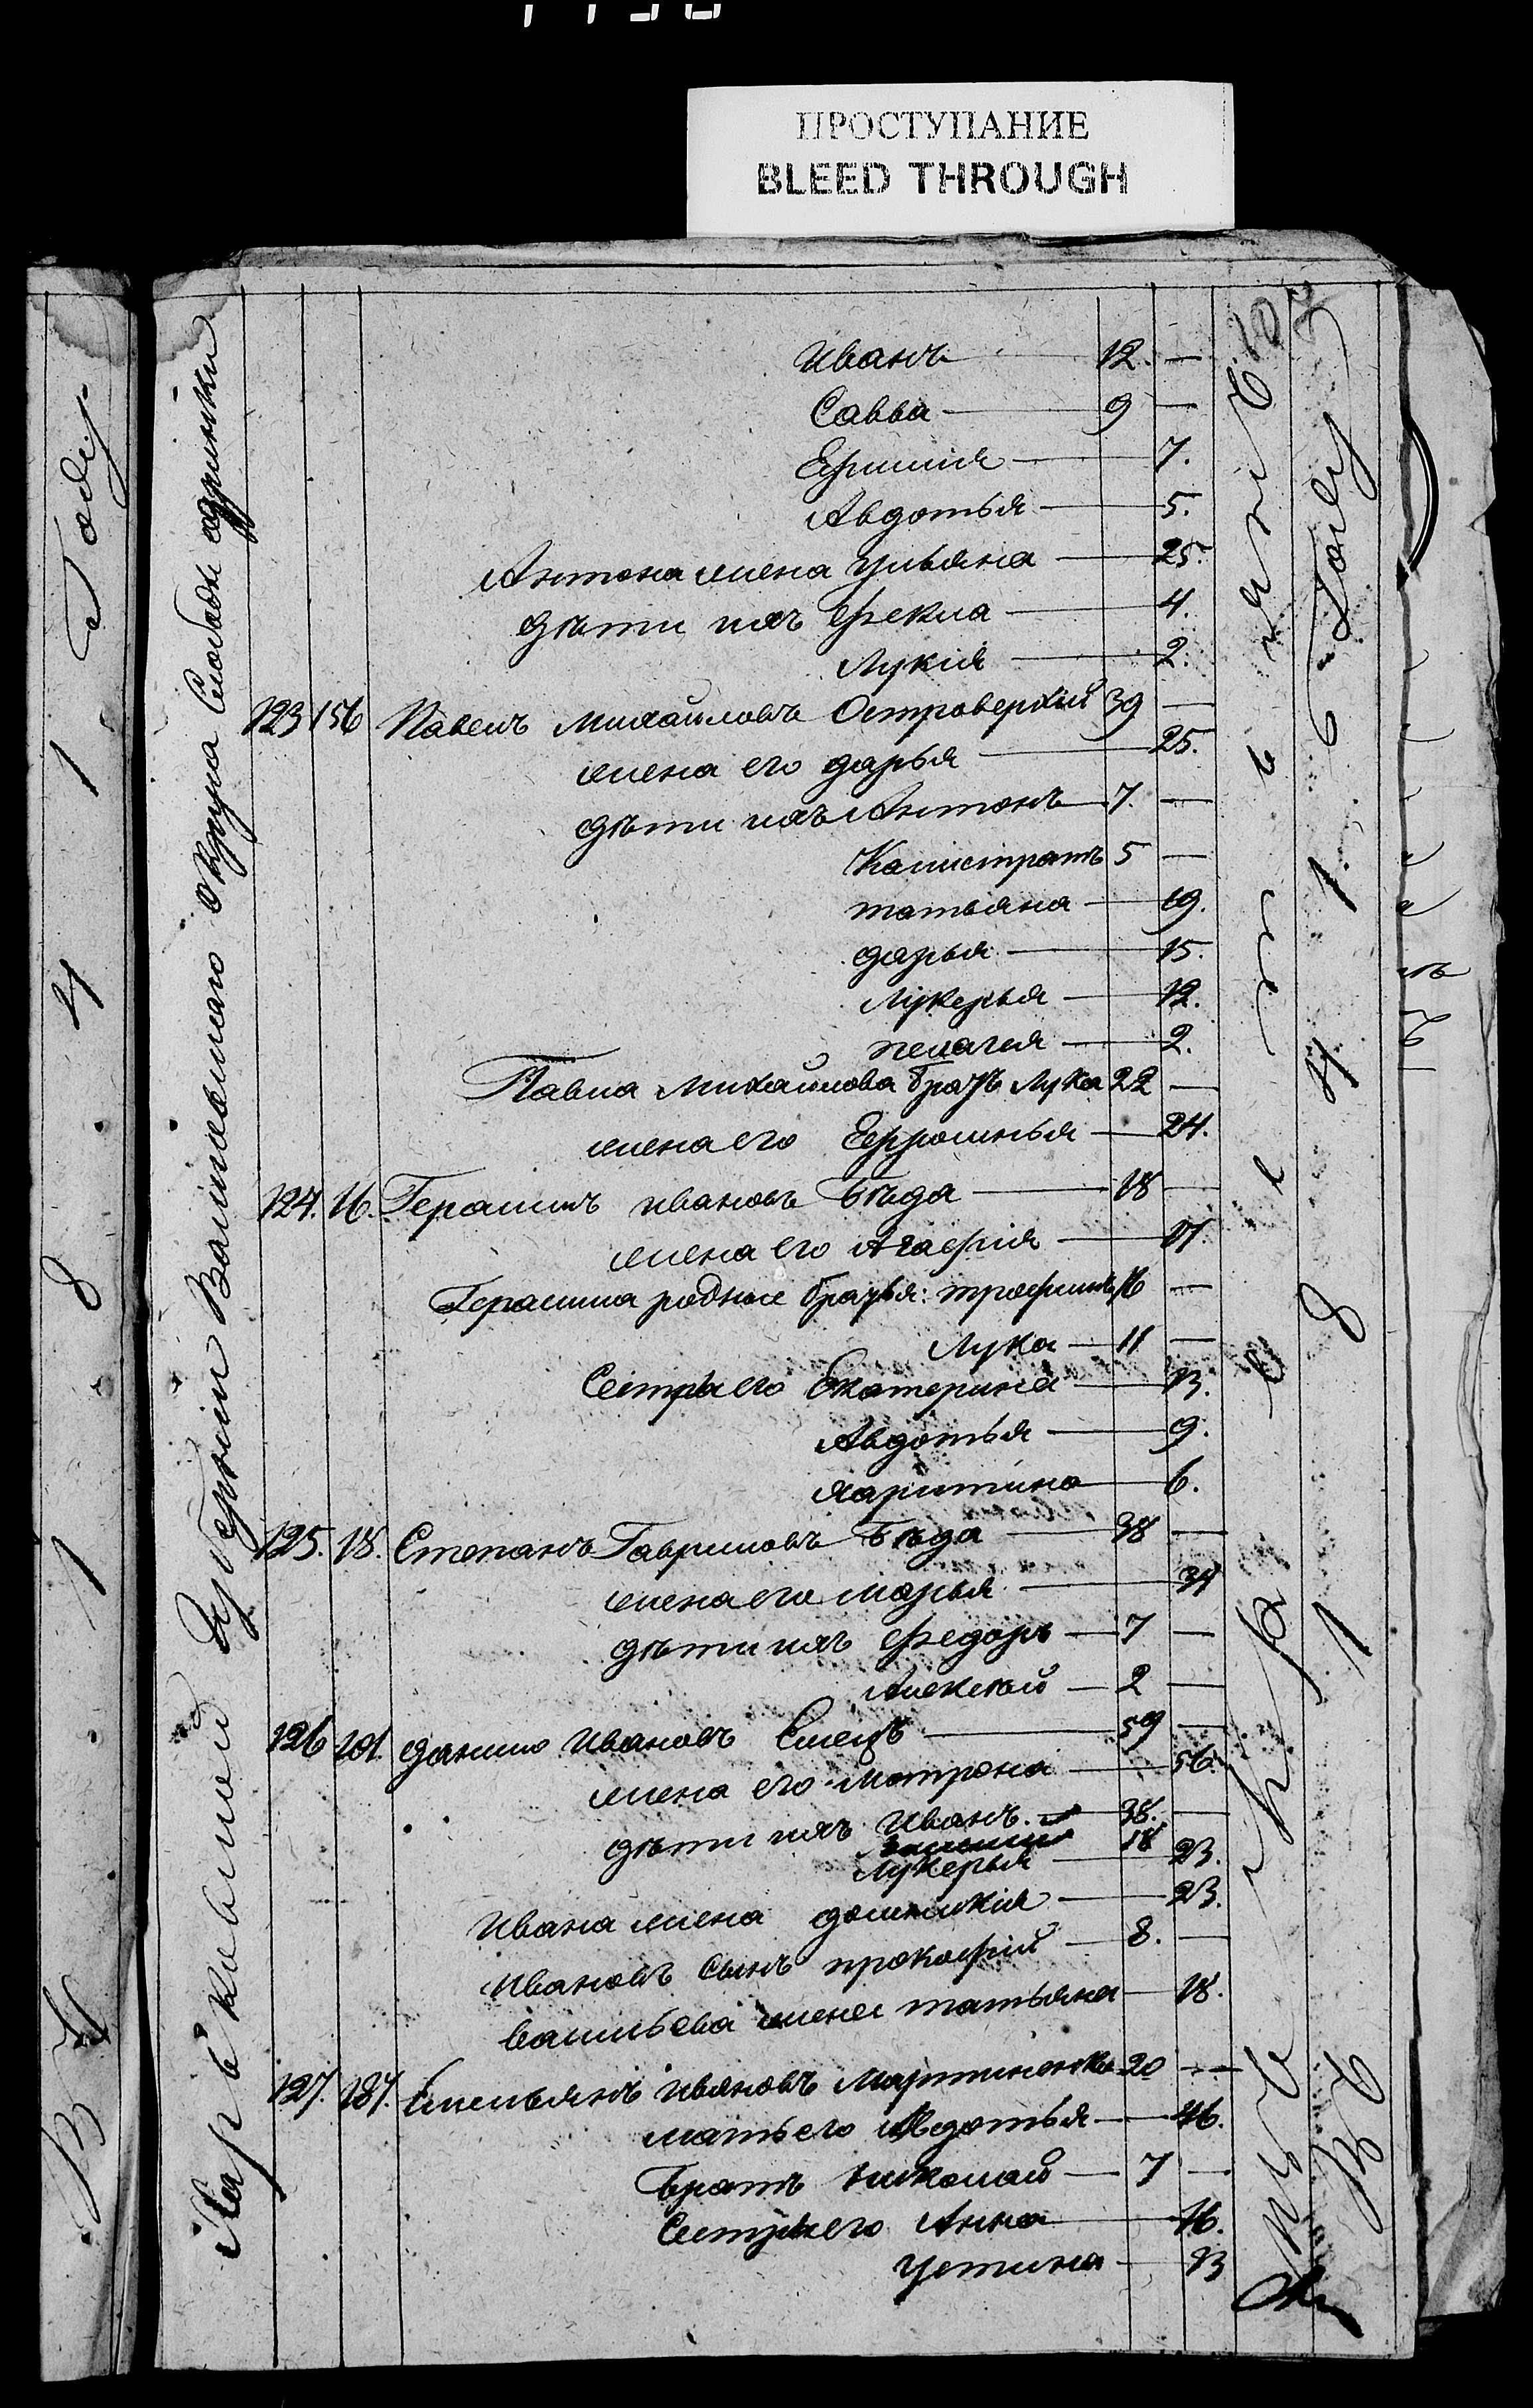 ПРОСТУПАНИЕ
BLEED THROUGH
Иванъ 12. —
Савва 9 —
7.
Авдотья 5.
Антона жена Ульяна 25.
дѣти ихъ Фекла 4.
Лукія 2.
123 156 Павелъ Михайловъ Островерхій 39 —
жена его дарья 25.
дѣти ихъ Антонъ 7. —
Калистратъ 5 —
татьяна 19.
дарья 15.
Лукерья 12.
пелагея 2.
Павла Михайлова братъ Лука 22 —
жена его Ефросинья 24.
124. 16. Герасимъ Ивановъ Бѣда 18 —
жена его Агафія 17.
Герасима родные братья: трофимъ 16 —
Лука 11 —
Сестры его Екатерина 13.
Авдотья 9.
харитина 6.
125. 18. Степанъ Гавриловъ Бѣда 38 —
жена его марья 34
дѣти ихъ Федоръ 7 —
Алексѣй 2 —
126 101. данило Ивановъ 59 —
жена его Матрона 56.
дѣти ихъ Иванъ. 38. —
18
Лукерья 23.
Ивана жена домникія 23.
Ивановъ сынъ прокофій 8. —
васильева жена татьяна 18.
127. 187. Емельянъ Ивановъ Мартиненко 20 —
мать его Авдотья 46.
братъ николай 7 —
Сестры его Анна 16.
Устина 13
Харьковской Губерніи Валковскаго округа Слободы
въ 1841 Году
Въ 1841 Году